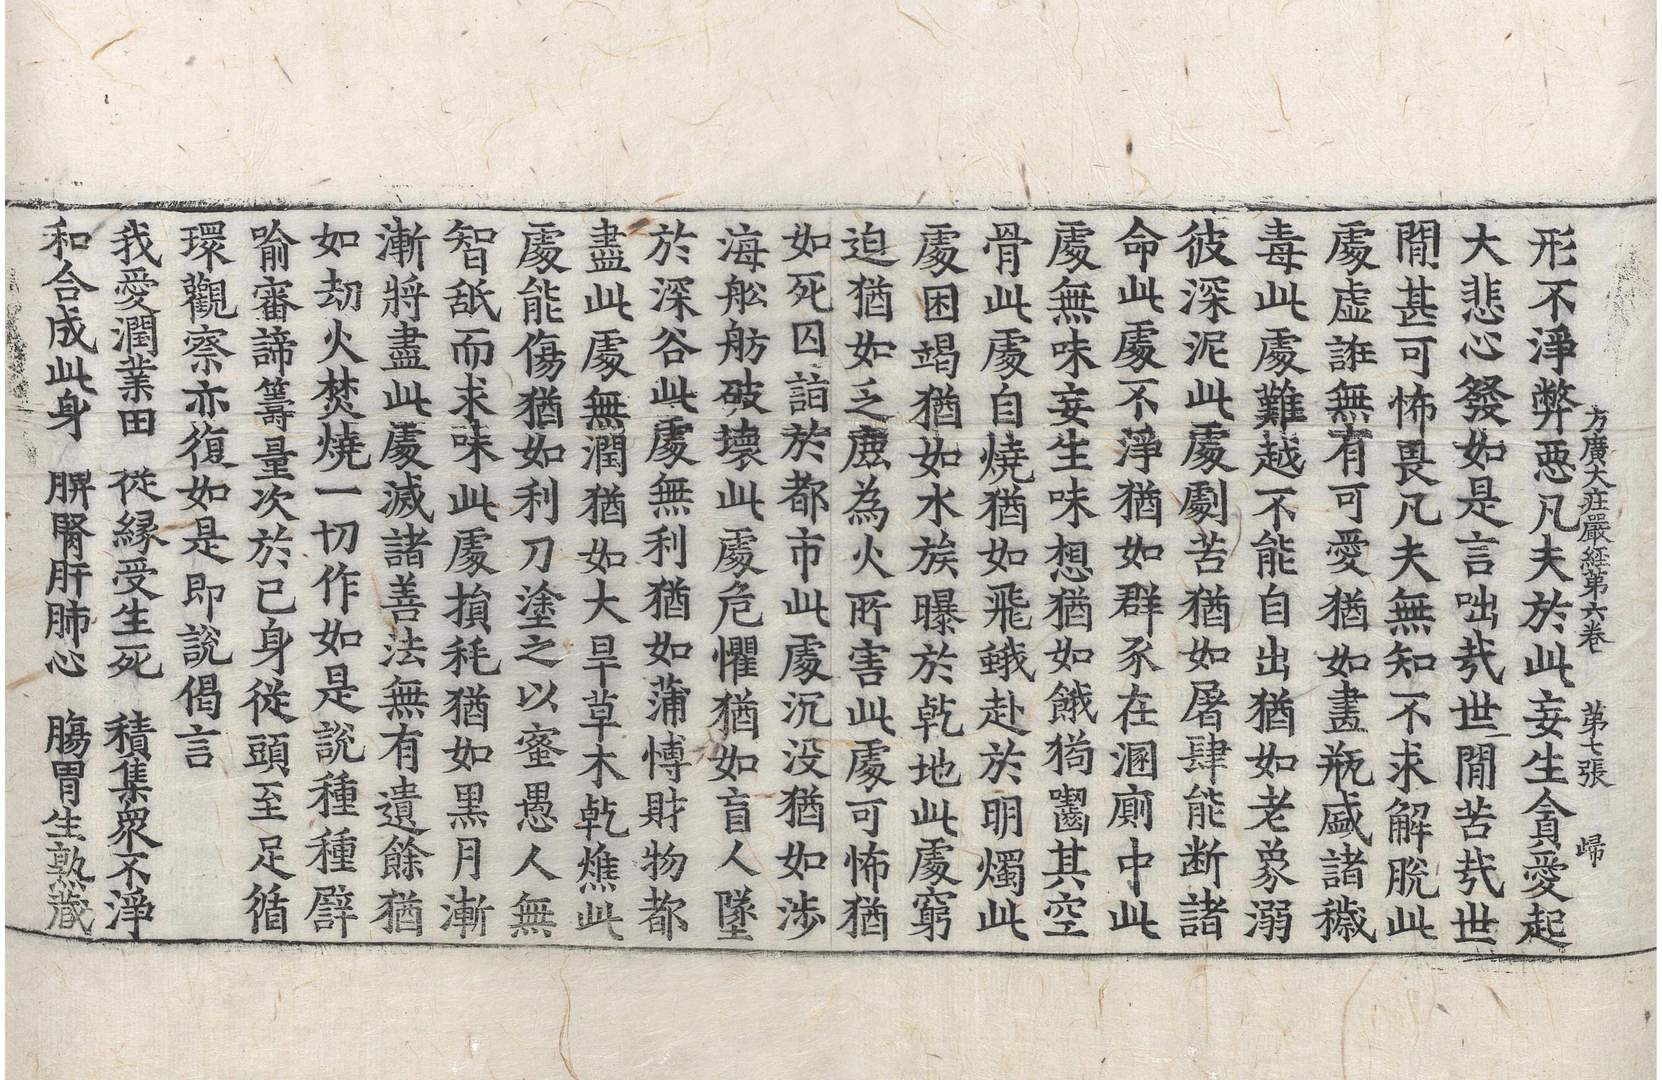 方廣大莊嚴經第六卷 第七張 歸
形不淨弊惡凡夫於此妄生貪愛起
大悲心發如是言咄哉世間苦哉世
間甚可怖畏凡夫無知不求解脫此
處虛誑無有可愛猶如畫瓶盛諸穢
毒此處難越不能自出猶如老象溺
彼深泥此處劇苦猶如屠肆能断諸
命此處不淨猶如群豕在溷廁中此
處無味妄生味想猶如餓狗嚙其空
骨此處自燒猶如飛蛾赴於明燭此
處困竭猶如水族曝於乾地此處窮
迫猶如乏麈為火所害此處可怖猶
如死囚詣於都市此處沉没猶如涉
海舩舫破壞此處危懼猶如盲人墜
於深谷此處無利猶如蒲博財物都
盡此處無潤猶如大旱草木乾燋此
處能傷猶如利刀塗之以蜜愚人無
智舐而求味此處損耗猶如黑月漸
漸將盡此處滅諸善法無有遺餘猶
如劫火焚燒一切作如是說種種譬
喻審諦籌量次於已身從頭至足循
環觀察亦復如是即說偈言
我愛潤業田 從緣受生死 積集眾不淨
和合成此身 脾腎肝肺心 膓胃生熟藏